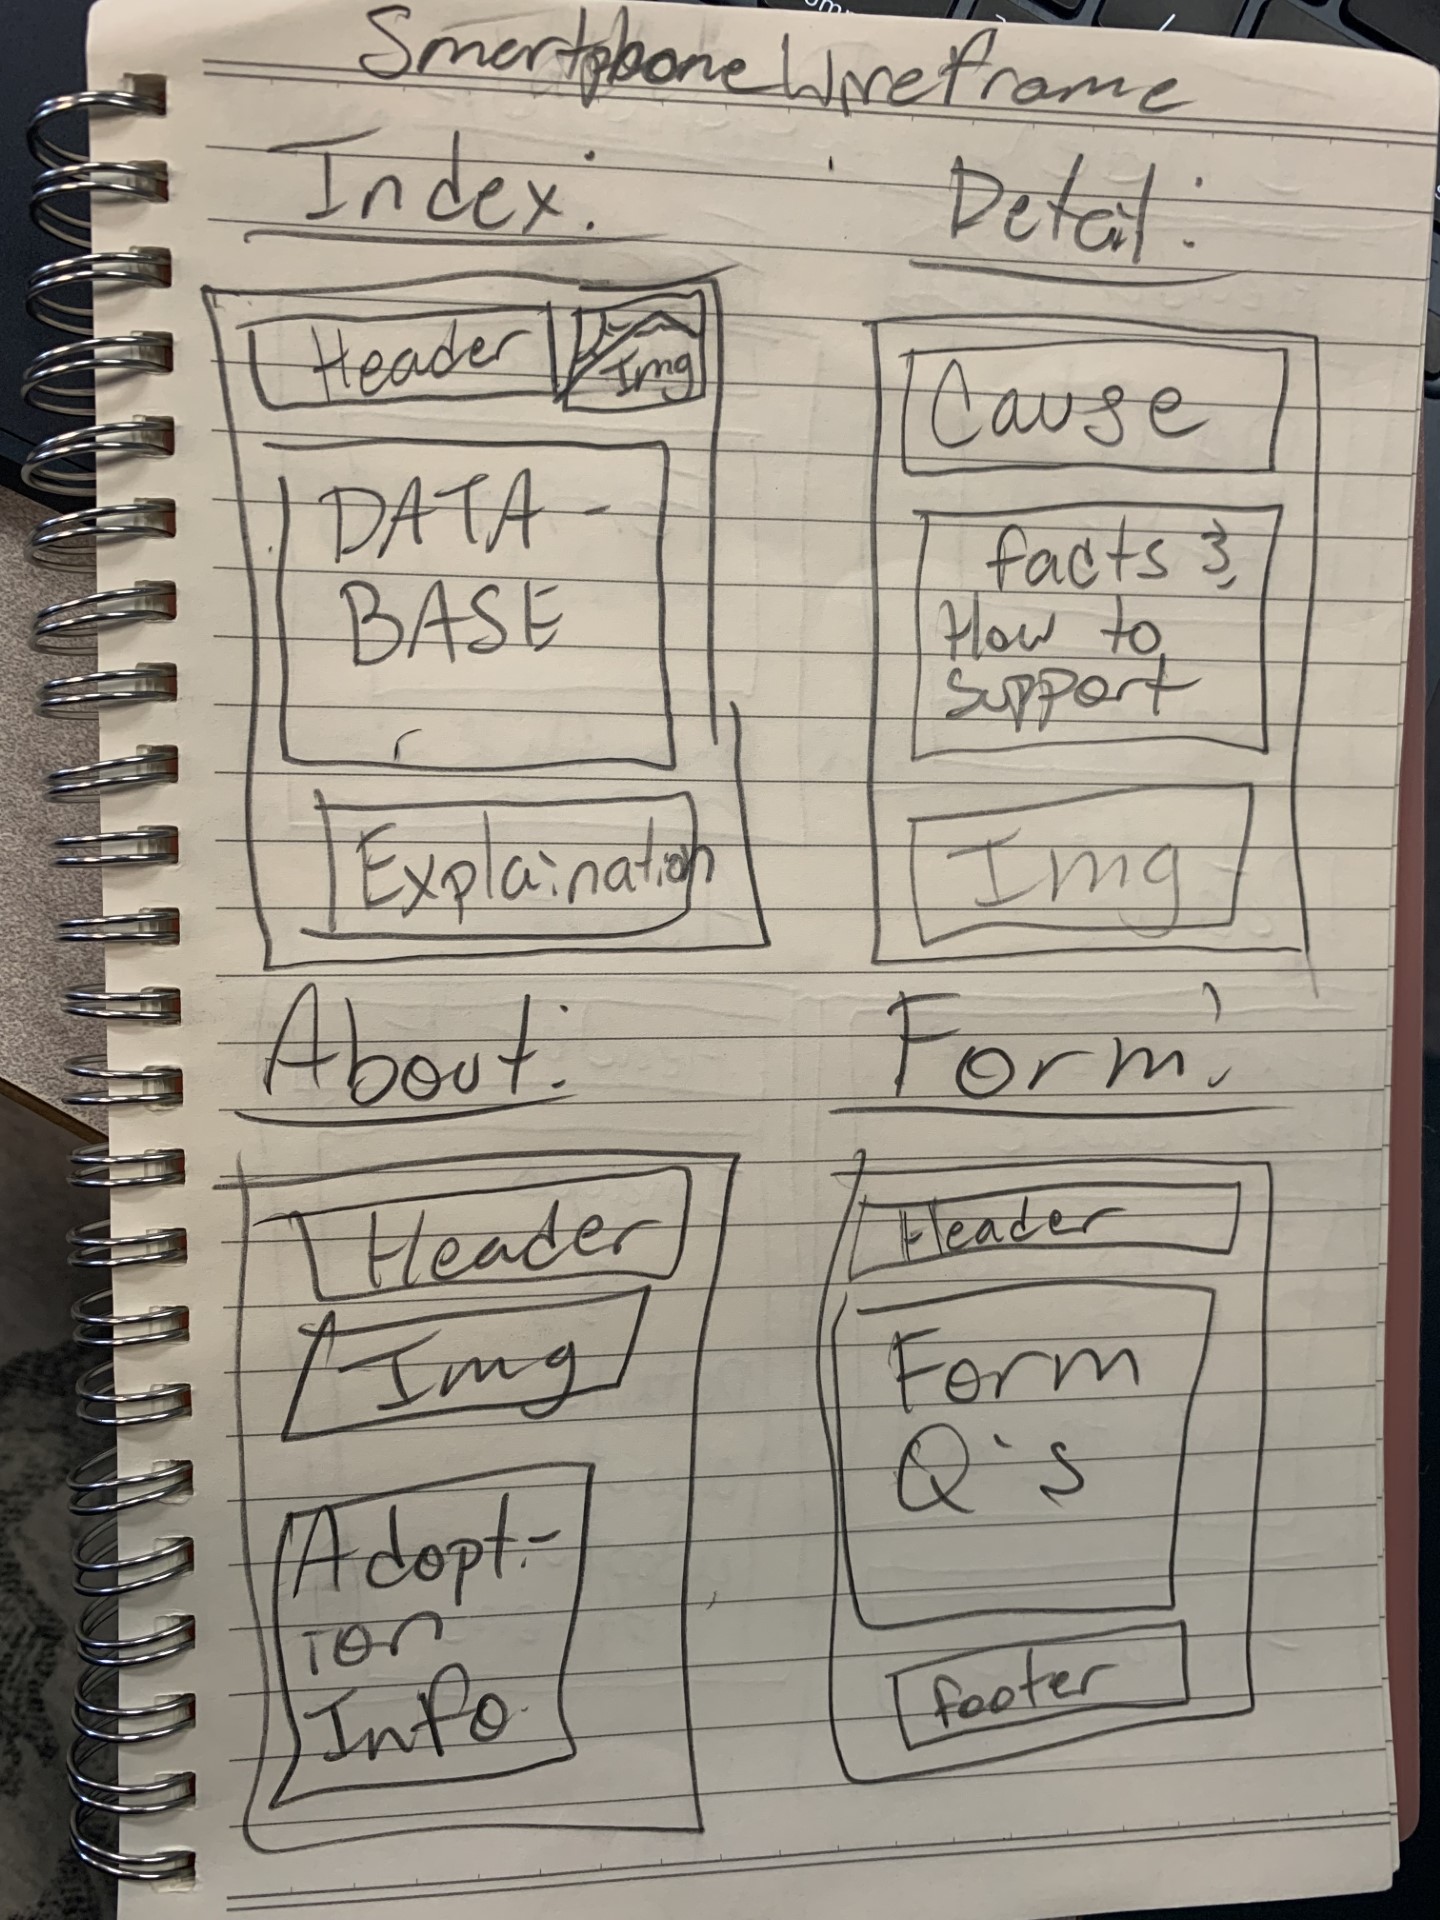 Smartphone Wireframe
Index:
Header
Img
DATA-
BASE
Explaination
Detail:
Cause
facts &
How to
support
Img
About:
Header
Img
Adopt-
ion
Info
Form:
Header
Form
Q's
footer